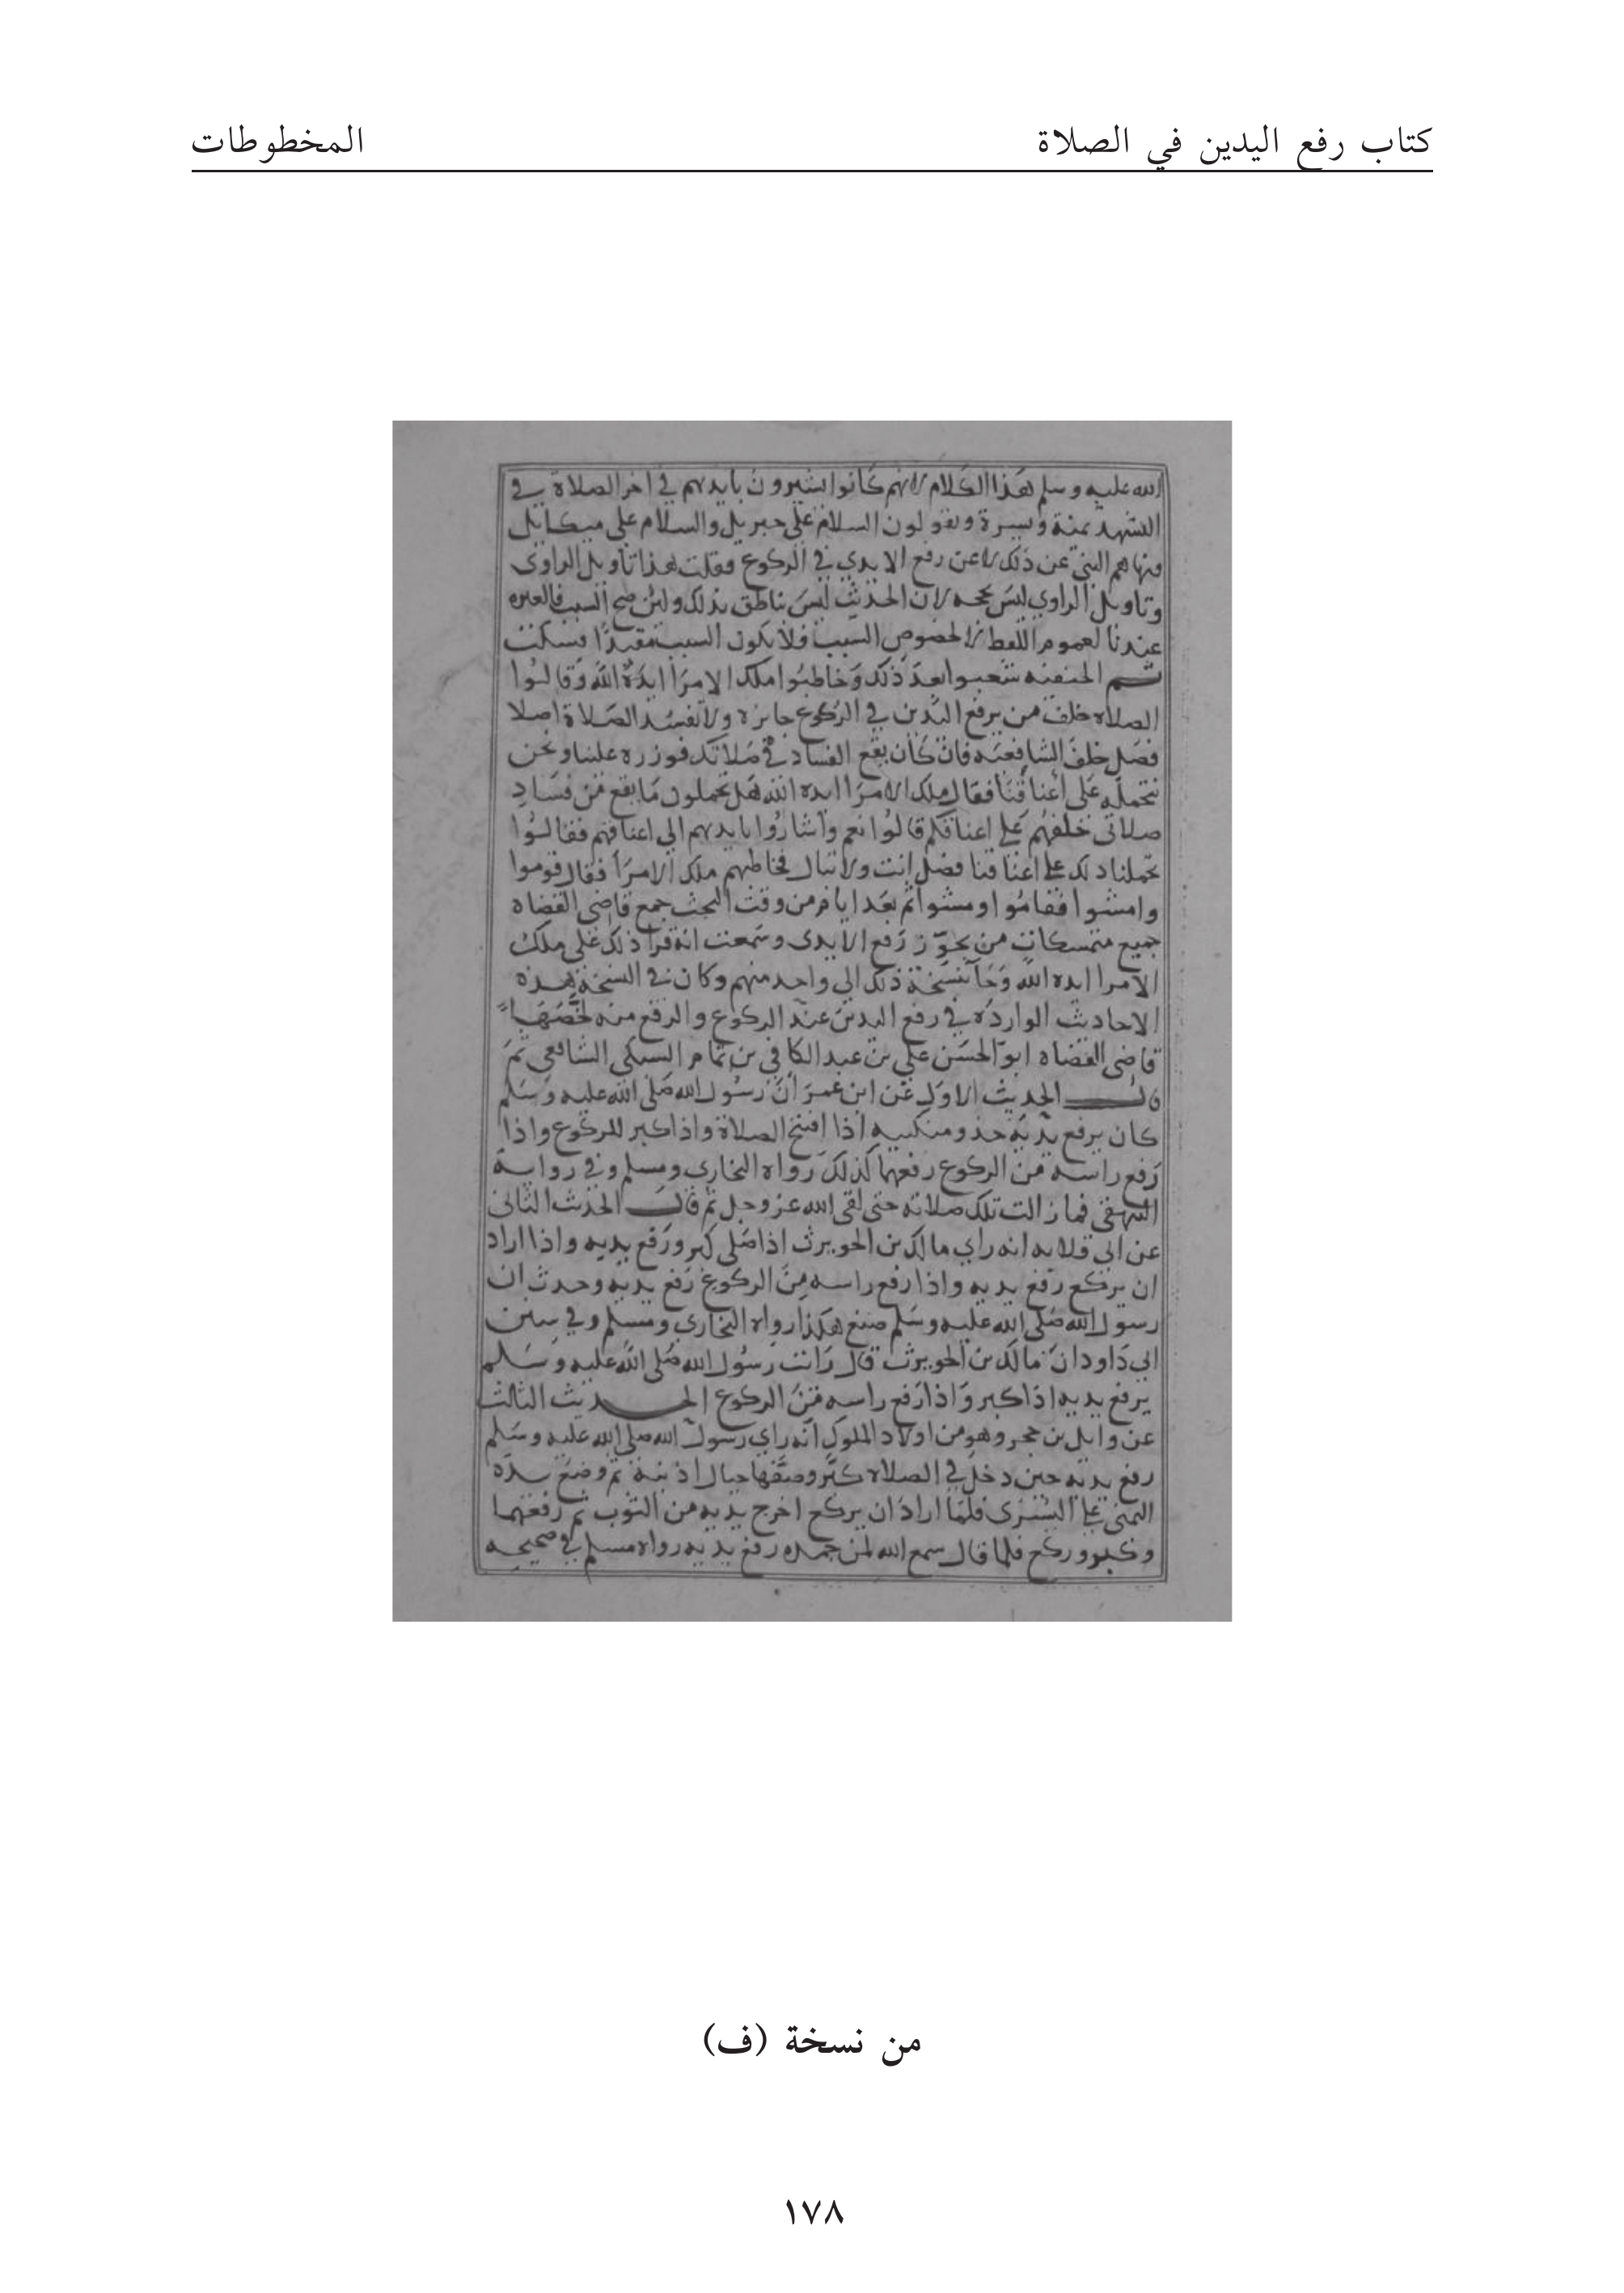 كتاب رفع اليدين في الصلاة
المخطوطات
الله عليه وسلم هذا الكلام لانهم كانوا يشيرون بايديهم في اخر الصلاة في
التشهد يمنة ويسرة ويقولون السلام على جبريل والسلام على ميكايل
فنهاهم النبي عن ذلك لا عن رفع الايدي في الركوع فقلت هذا تاويل الراوي
وتاويل الراوي ليس بحجه لان الحديث ليس بناطق بذلك ولين صح السبب فالعبره
عندنا لعموم اللفظ لا لخصوص السبب فلا يكون السبب مقيدا فسكت
ثم الحنفيه شعبوا بعد ذلك وخاطبوا ملك الامرا ايده الله وقالوا
الصلاه خلف من يرفع اليدين في الركوع جايزه ولا تفسد الصلاة اصلا
فصل خلف الشافعيه فان كان يقع الفساد في صلاتك فوزره علينا ونحن
نتحمله على اعناقنا فقال ملك الامرا ايده الله هل تحملون ما يقع من فساد
صلاتي خلفهم على اعناقكم قالوا نعم واشاروا بايديهم الى اعناقهم فقالوا
تحملنا ذلك على اعناقنا فصل انت ولا تبال فخاطبهم ملك الامرا فقال قوموا
وامشوا فقاموا ومشوا ثم بعد ايام من وقت البحث جمع قاضي القضاه
جميع متمسكات من يجوز رفع الايدي وسمعت انه قرا ذلك على ملك
الامرا ايده الله وجا نسخة ذلك الى واحد منهم وكان في النسخة هذه
الاحاديث الوارده في رفع اليدين عند الركوع والرفع منه لخصها
قاضي القضاه ابو الحسن علي بن عبد الكافي بن تمام السبكي الشافعي ثم
قال الحديث الاول عن ابن عمر ان رسول الله صلى الله عليه وسلم
كان يرفع يديه حذو منكبيه اذا افتتح الصلاة واذا كبر للركوع واذا
رفع راسه من الركوع رفعهما كذلك رواه البخاري ومسلم وفي رواية
البيهقي فما زالت تلك صلاته حتى لقي الله عز وجل ثم قال الحديث الثاني
عن ابي قلابه انه راي مالك بن الحويرث اذا صلى كبر ورفع يديه واذا اراد
ان يركع رفع يديه واذا رفع راسه من الركوع رفع يديه وحدث ان
رسول الله صلى الله عليه وسلم صنع هكذا رواه البخاري ومسلم وفي سنن
ابي داود ان مالك بن الحويرث قال رايت رسول الله صلى الله عليه وسلم
يرفع يديه اذا كبر واذا رفع راسه من الركوع الحديث الثالث
عن وايل بن حجر وهو من اولاد الملوك انه راي رسول الله صلى الله عليه وسلم
رفع يديه حين دخل في الصلاه كبر وصفها حيال اذنيه ثم وضع يده
اليمنى على اليسرى فلما اراد ان يركع اخرج يديه من الثوب ثم رفعهما
وكبر وركع فلما قال سمع الله لمن حمده رفع يديه رواه مسلم في صحيحه
من نسخة (ف)
١٧٨